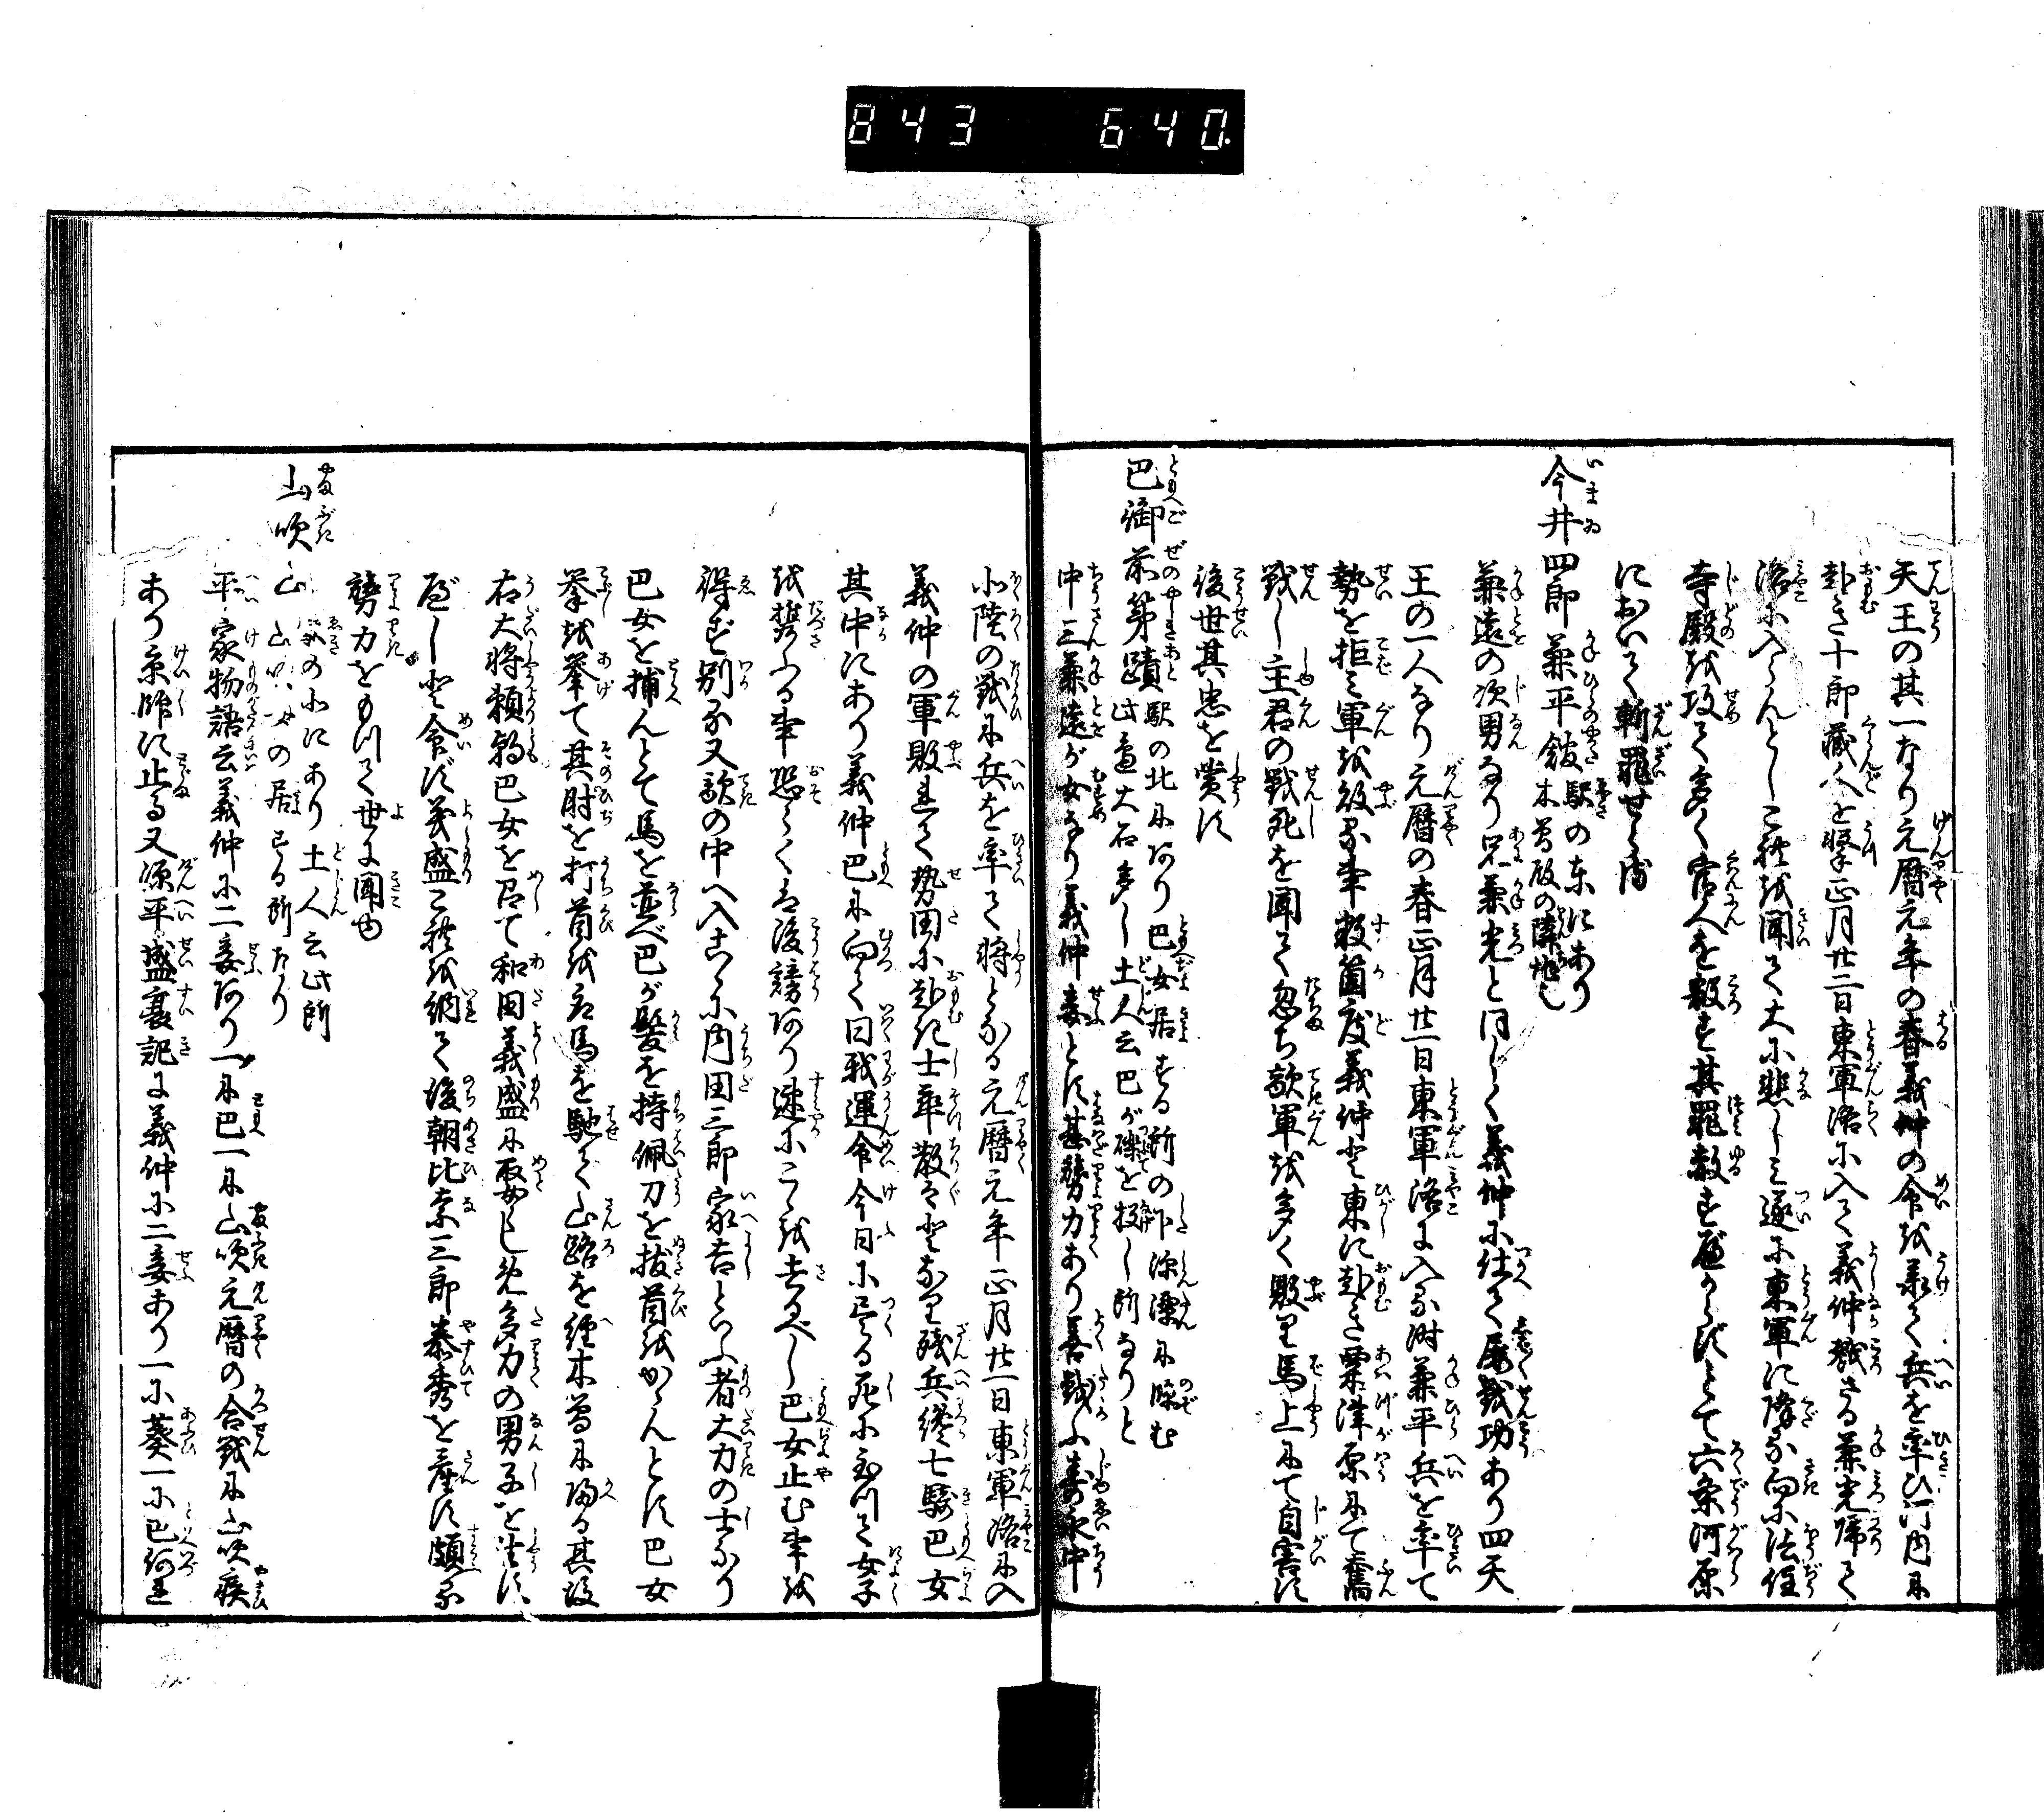 843 640.
天王の其一なり元暦元年の春義仲の命を承て兵を率ひ河内に
赴き十郎蔵人を撃正月廿二日東軍洛に入て義仲戮さる兼光帰て
洛に入らんとしこれを聞て大に悲しミ遂に東軍に降る向に法住
寺殿を攻て多く官人を殺す其罪赦すべからずとて六条河原
において斬罪せらる
今井四郎兼平館 駅の東にあり
木曽殿の隣地也
兼遠の次男なり兄兼光と同じく義仲に仕て屡戦功あり四天
王の一人なり元暦の春正月廿一日東軍洛に入る時兼平兵を率て
勢を拒ミ軍を破る事数箇度義仲と東に赴き粟津原にて奮
戦し主君の戦死を聞て忽ち敵軍を多く殺し馬上にて自害す
後世其忠を賞す
巴御前第蹟 駅の北にあり巴女居する所の下深潭に臨む
此辺大石多し土人云巴が礫を投し所なりと
中三兼遠が女なり義仲妾とす甚勢力あり善戦ふ寿永中
北陸の戦に兵を率て将となる元暦元年正月廿一日東軍洛に入
義仲の軍敗れて勢田に赴く士卒散々となり残兵纔七騎巴女
其中にあり義仲巴に向て曰我運命今日に尽る死に至つて女子
を携ふる事恐らくは後謗あり速にこゝを去べし巴女止む事を
得ず別る又敵の中へ入こゝに内田三郎家吉といふ者大力の士なり
巴女を捕んとて馬を並べ巴が髪を持佩刀を抜首をかゝんとす巴女
拳を挙て其肘を打首を取馬を馳て山路を経木曽に帰る其後
右大将頼朝巴女を召て和田義盛に娶らしめ多力の男子を生ず
べしと命ず義盛これを納て後朝比奈三郎泰秀を産す頗る
勢力をもつて世に聞ゆ
山吹山 駅の北にあり土人云此所
山吹女の居する所なり
平家物語云義仲に二妾あり一に巴一に山吹元暦の合戦に山吹疾
あり京師に止る又源平盛衰記に義仲に二妾あり一に葵一に巴何れ